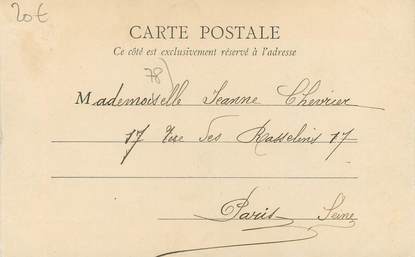 20€
CARTE POSTALE
Ce côté est exclusivement réservé à l'adresse
78)
Mademoiselle Jeanne Chevrier
17 Rue des Rasselins 17
Paris Seine